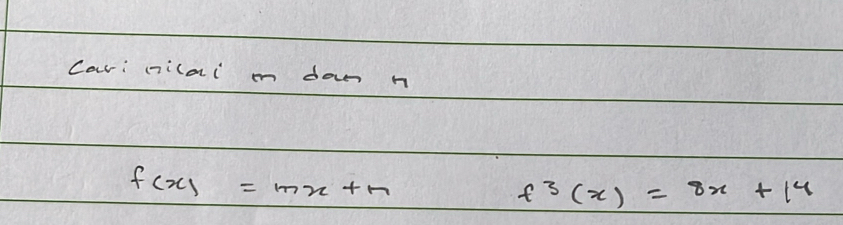 Cari nilai m dan n
f(x) = mx + n f³(x) = 8x + 14